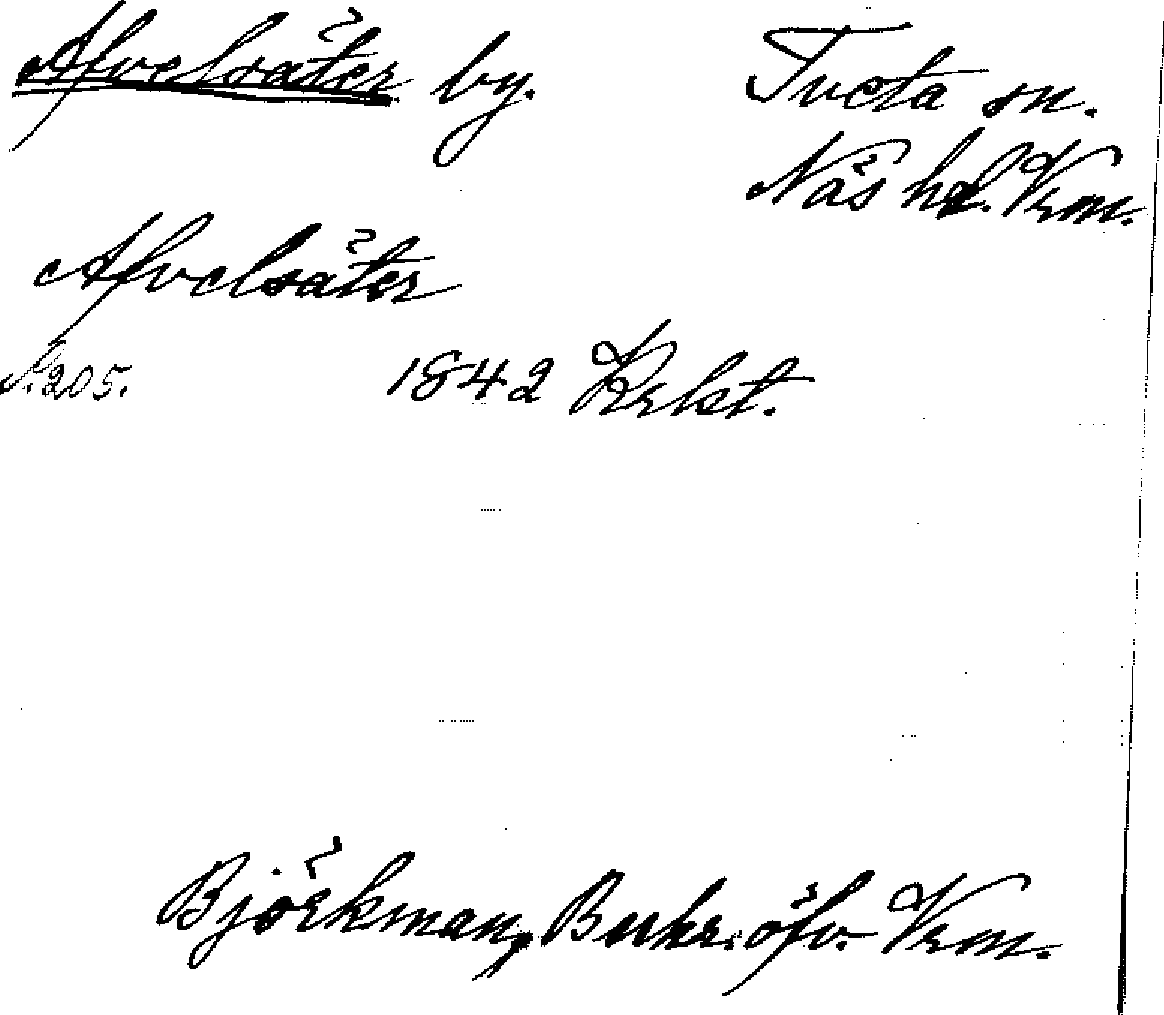 Afvelsäter by.
Tveta sn.
Näs hd. Vrm.
Afvelsäter
S. 205.
1842 Krlst.
Björkman, Beskr. öfv. Vrm.